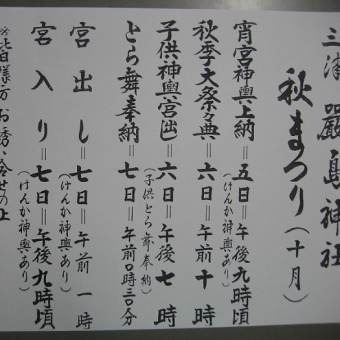 三津嚴島神社
秋まつり（十月）
宵宮神輿上納＝五日＝午後九時
（けんか神輿あり）
秋季大祭々典＝六日＝午前十時
子供神輿宮出＝六日＝午後七時
（子供とら舞奉納）
とら舞奉納＝七日＝午前0時三0分
宮出し＝七日＝午前一時
（けんか神輿あり）
宮入り＝七日＝午後九時頃
（けんか神輿あり）
※皆様方お誘い合せの上